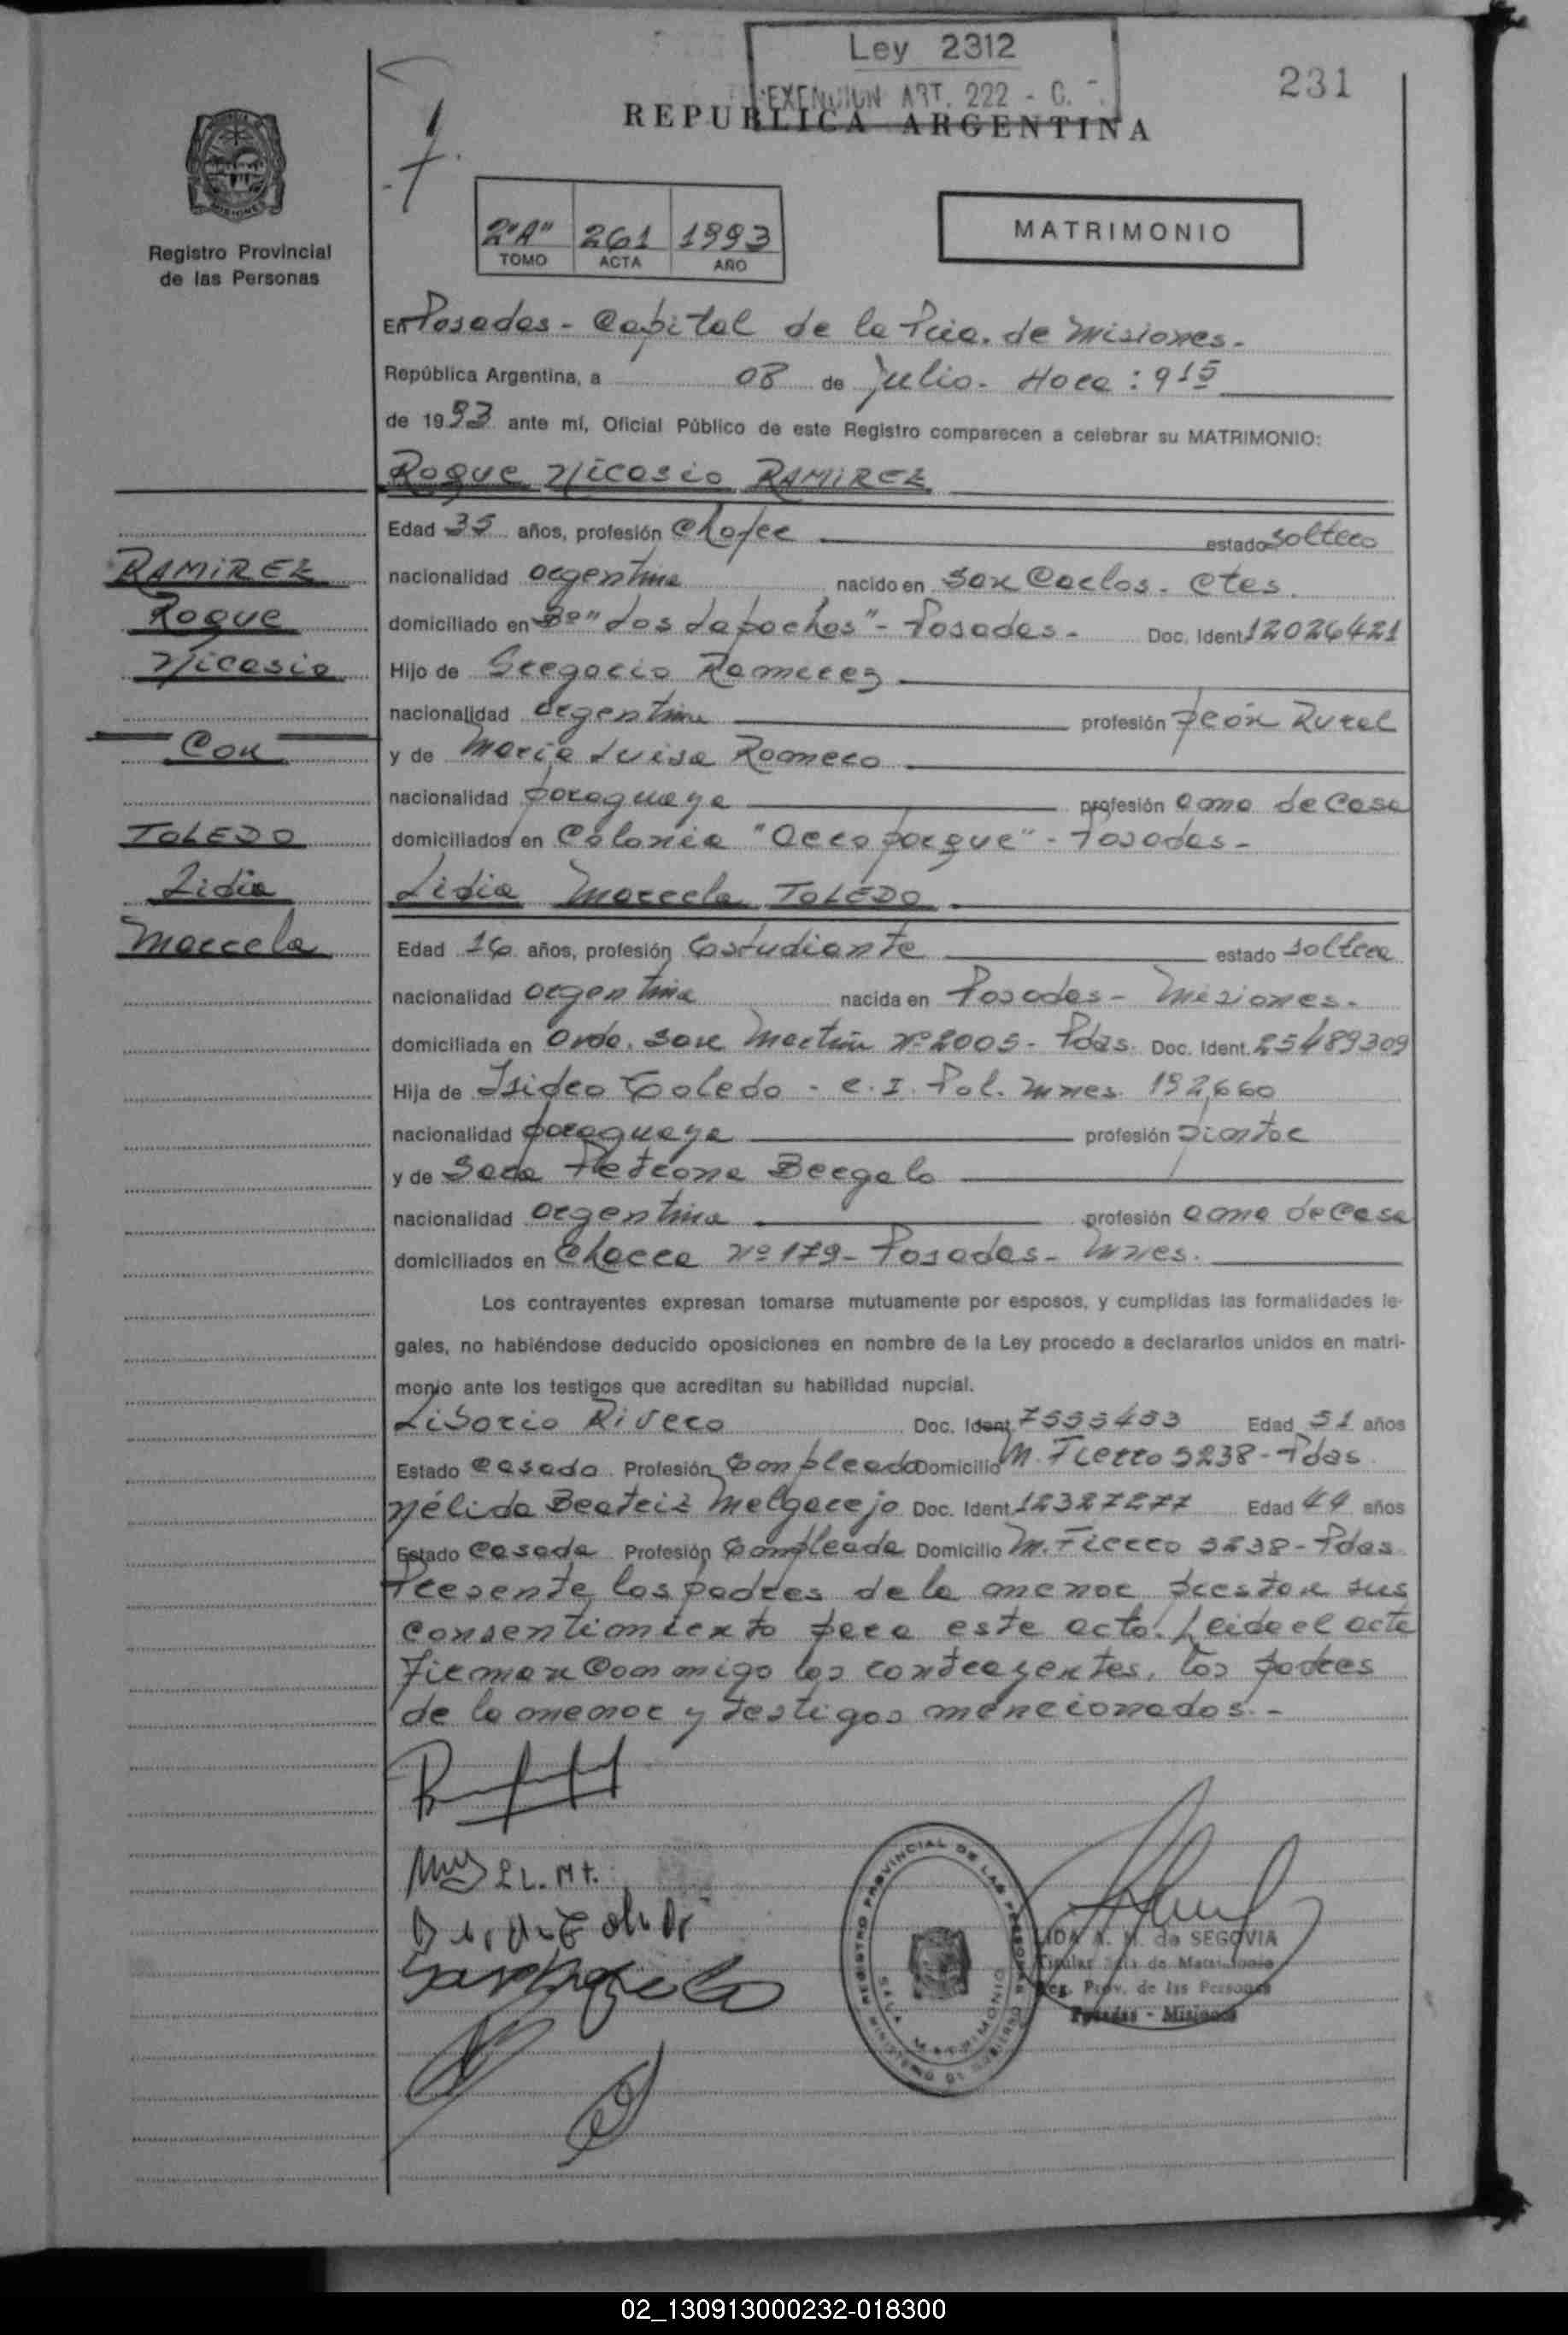 Ley 2312
EXENCION ART. 222 - C.
231
REPUBLICA ARGENTINA
MISIONES
Registro Provincial
de las Personas
2º"A" 261 1993
TOMO ACTA AÑO
MATRIMONIO
En Posadas - Capital de la Pcia. de Misiones.-
República Argentina, a 08 de julio. Hora: 9 15
de 1993 ante mí, Oficial Público de este Registro comparecen a celebrar su MATRIMONIO:
Roque Nicasio RAMIREZ
Edad 35 años, profesión Chofer estado soltero
RAMIREZ
nacionalidad argentina nacido en San Carlos - Ctes.
Roque
domiciliado en Bº "Los Lapachos" - Posadas - Doc. Ident. 12026421
Nicasio
Hijo de Gregorio Ramirez
nacionalidad argentina profesión peón Rural
Con
y de María Luisa Romero
nacionalidad paraguaya profesión ama de Casa
TOLEDO
domiciliados en Colonia - Posadas -
Lidia
Lidia Marcela TOLEDO
Marcela
Edad 16 años, profesión Estudiante estado soltera
nacionalidad argentina nacida en Posadas - Misiones.
domiciliada en Avda. San Martín Nº 2005 - Pdas. Doc. Ident. 25489309
Hija de Isidro Toledo - C.I. Pol. Mnes. 192,660
nacionalidad paraguaya profesión pintor
y de Sara Petrona Bergalo
nacionalidad argentina profesión ama de Casa
domiciliados en Charra Nº 179 - Posadas - Mnes.
Los contrayentes expresan tomarse mutuamente por esposos, y cumplidas las formalidades le-
gales, no habiéndose deducido oposiciones en nombre de la Ley procedo a declararlos unidos en matri-
monio ante los testigos que acreditan su habilidad nupcial.
Liborio Rivero Doc. Ident. 7555453 Edad 51 años
Estado Casado Profesión Empleado Domicilio M. Fierro 5238 - Pdas.
Nélida Beatriz Melgarejo Doc. Ident. 12327277 Edad 44 años
Estado Casada Profesión Empleada Domicilio M. Fierro 5238 - Pdas.
Presente los padres de la menor prestan sus
consentimiento para este acto. Leida el acta
firman Conmigo los contrayentes, los padres
de la menor y testigos mencionados.-
REGISTRO PROVINCIAL DE LAS PERSONAS
MATRIMONIO
A. M. de SEGOVIA
Titular Jefa de Matrimonio
Reg. Prov. de las Personas
Posadas - Misiones
02_130913000232-018300